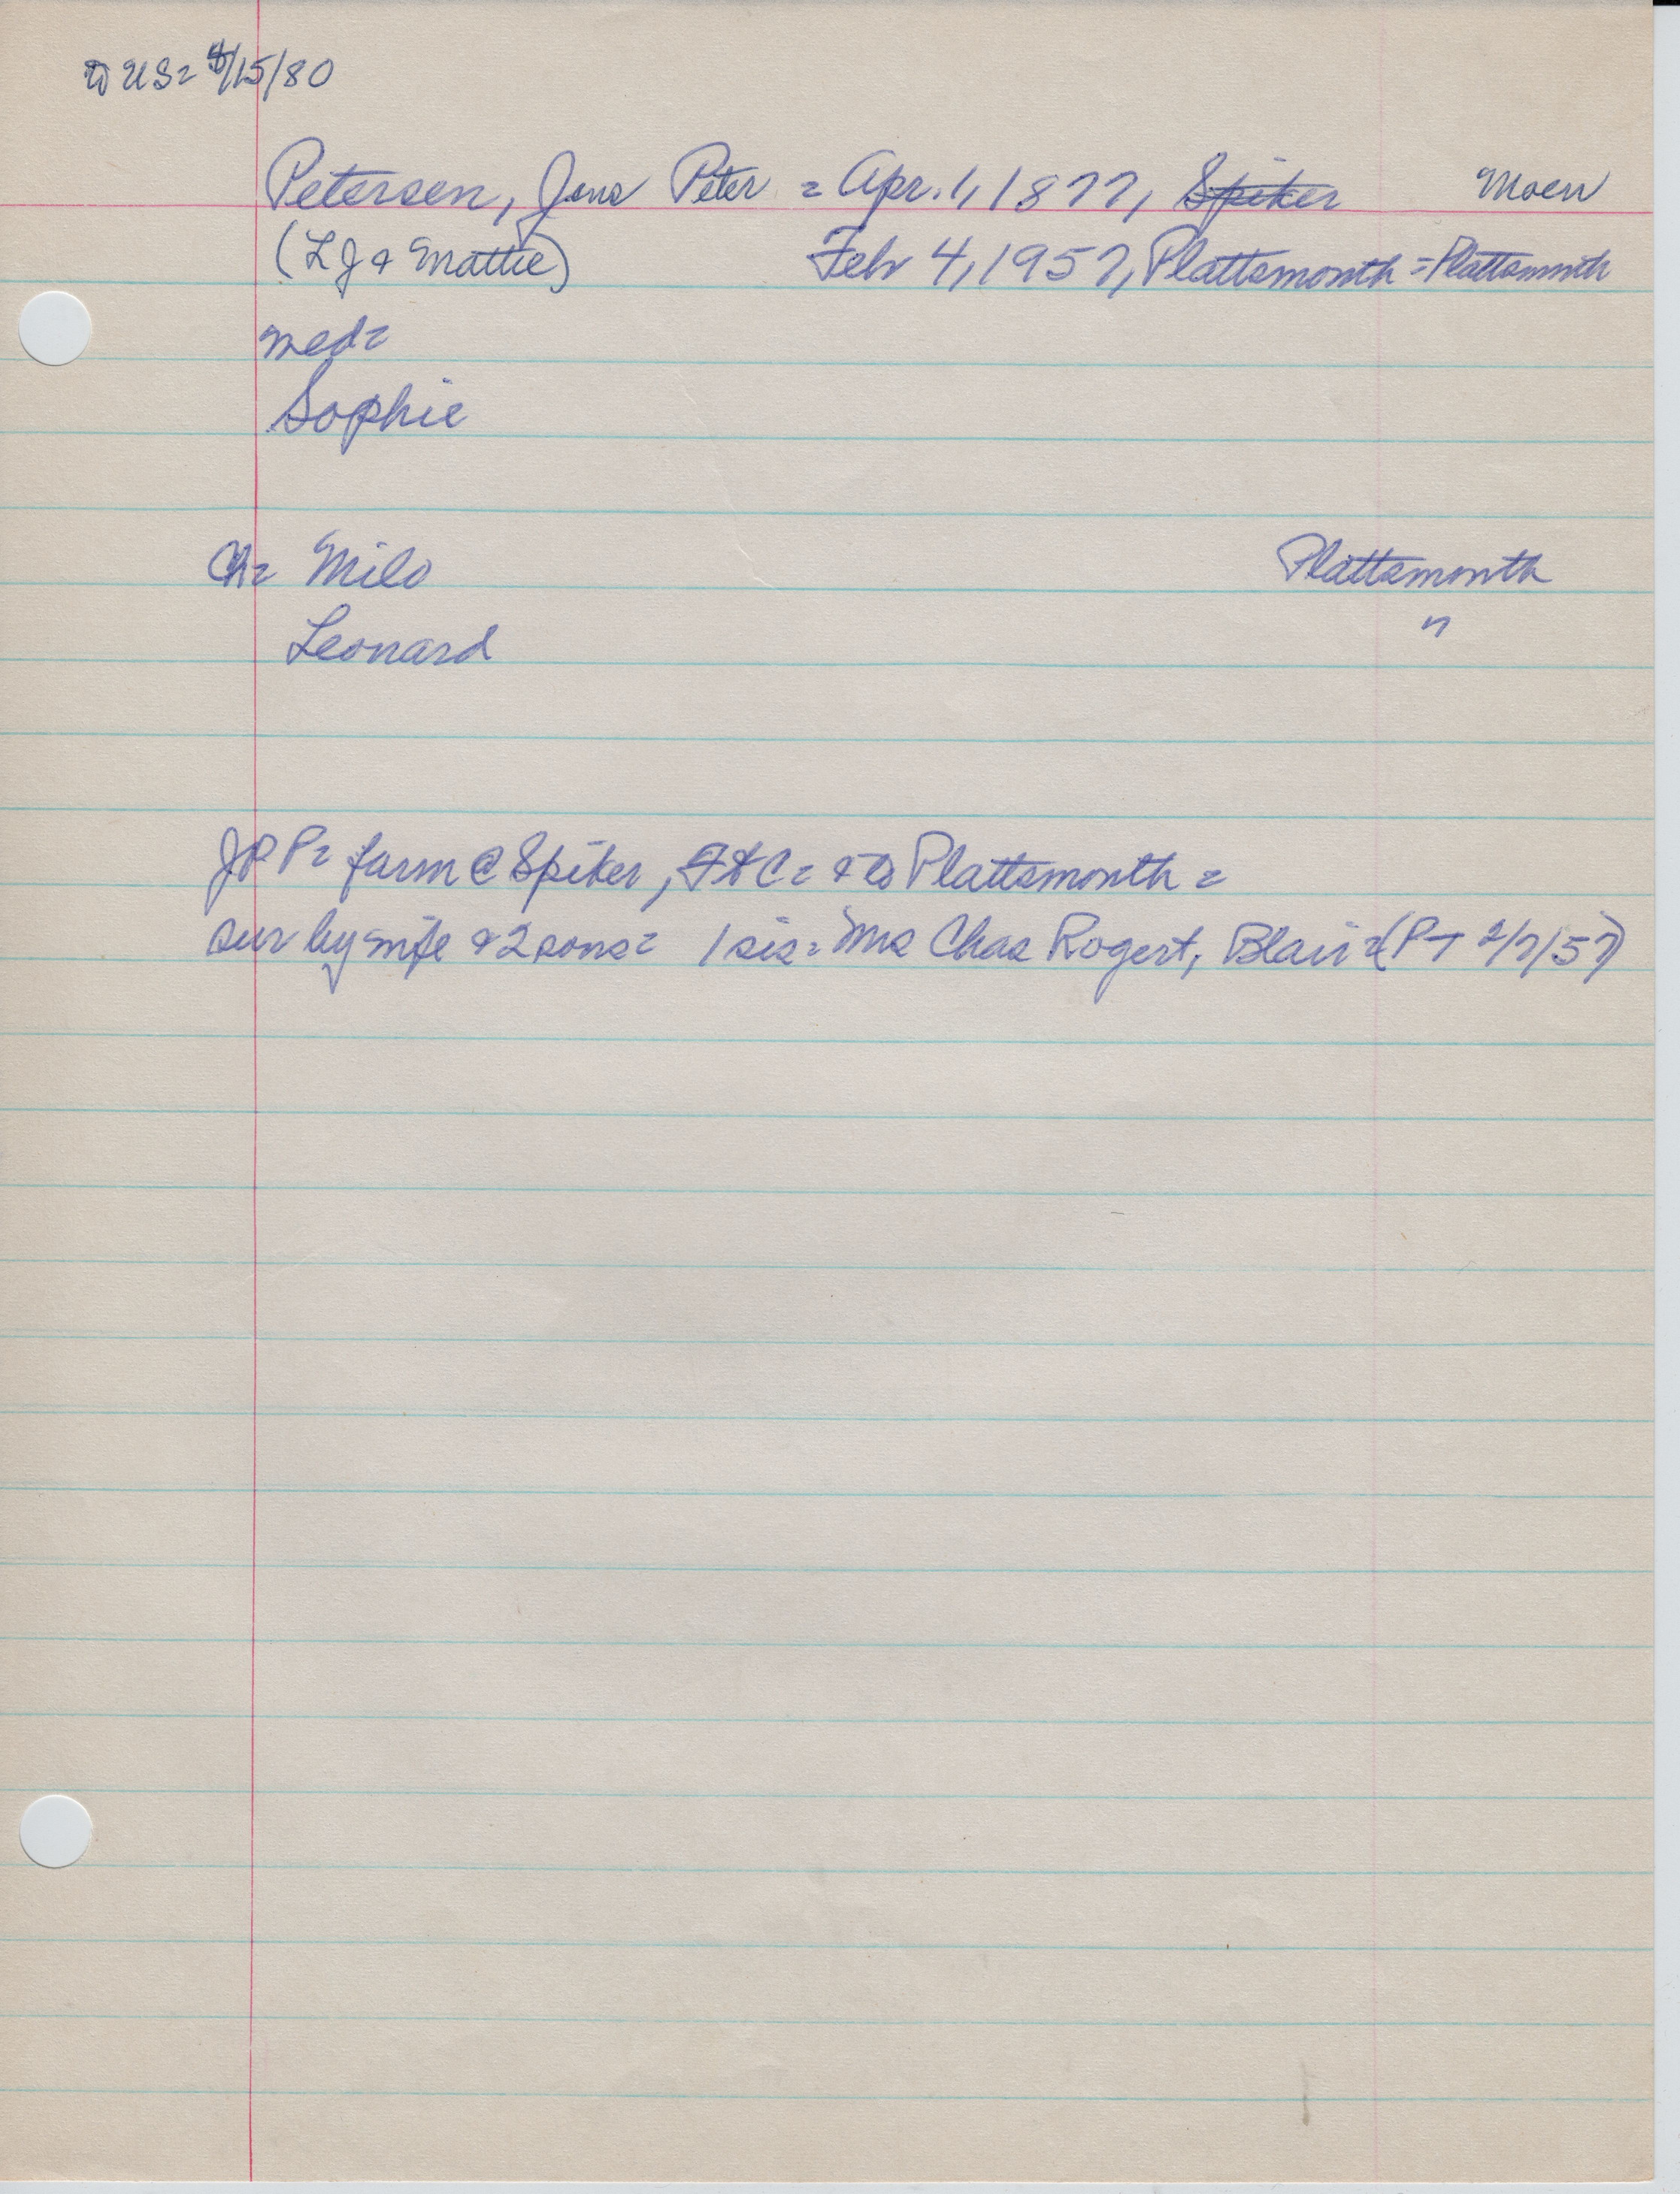 to US= /15/80
Petersen, Jens Peter = Apr. 1, 1877, Spiker Moen
(LJ & Mattie) Feb 4, 1957, Plattsmouth = Plattsmouth
med=
Sophie
Ch= Milo Plattsmouth
Leonard "
JPP= farm @ Spiker, = & to Plattsmouth =
sur by wife & 2 sons= 1 sis= Mrs Chas Rogert, Blair = (PT 2/7/57)